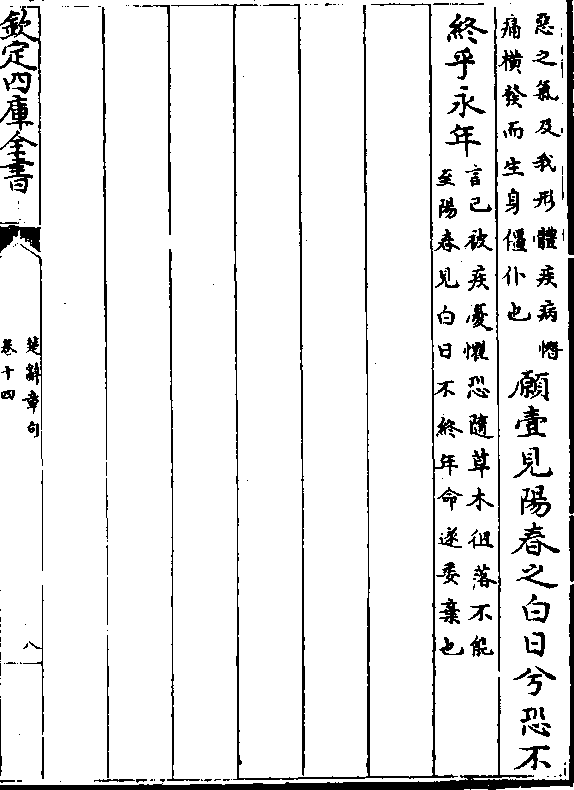 惡之氣及我形體疾病憯
痛橫發而生身僵仆也
願壹見陽春之白日兮恐不
終乎永年
言己被疾憂懼恐隨草木徂落不能
至陽春見白日不終年命遂委棄也
楚辭章句
卷十四
八
欽定四庫全書